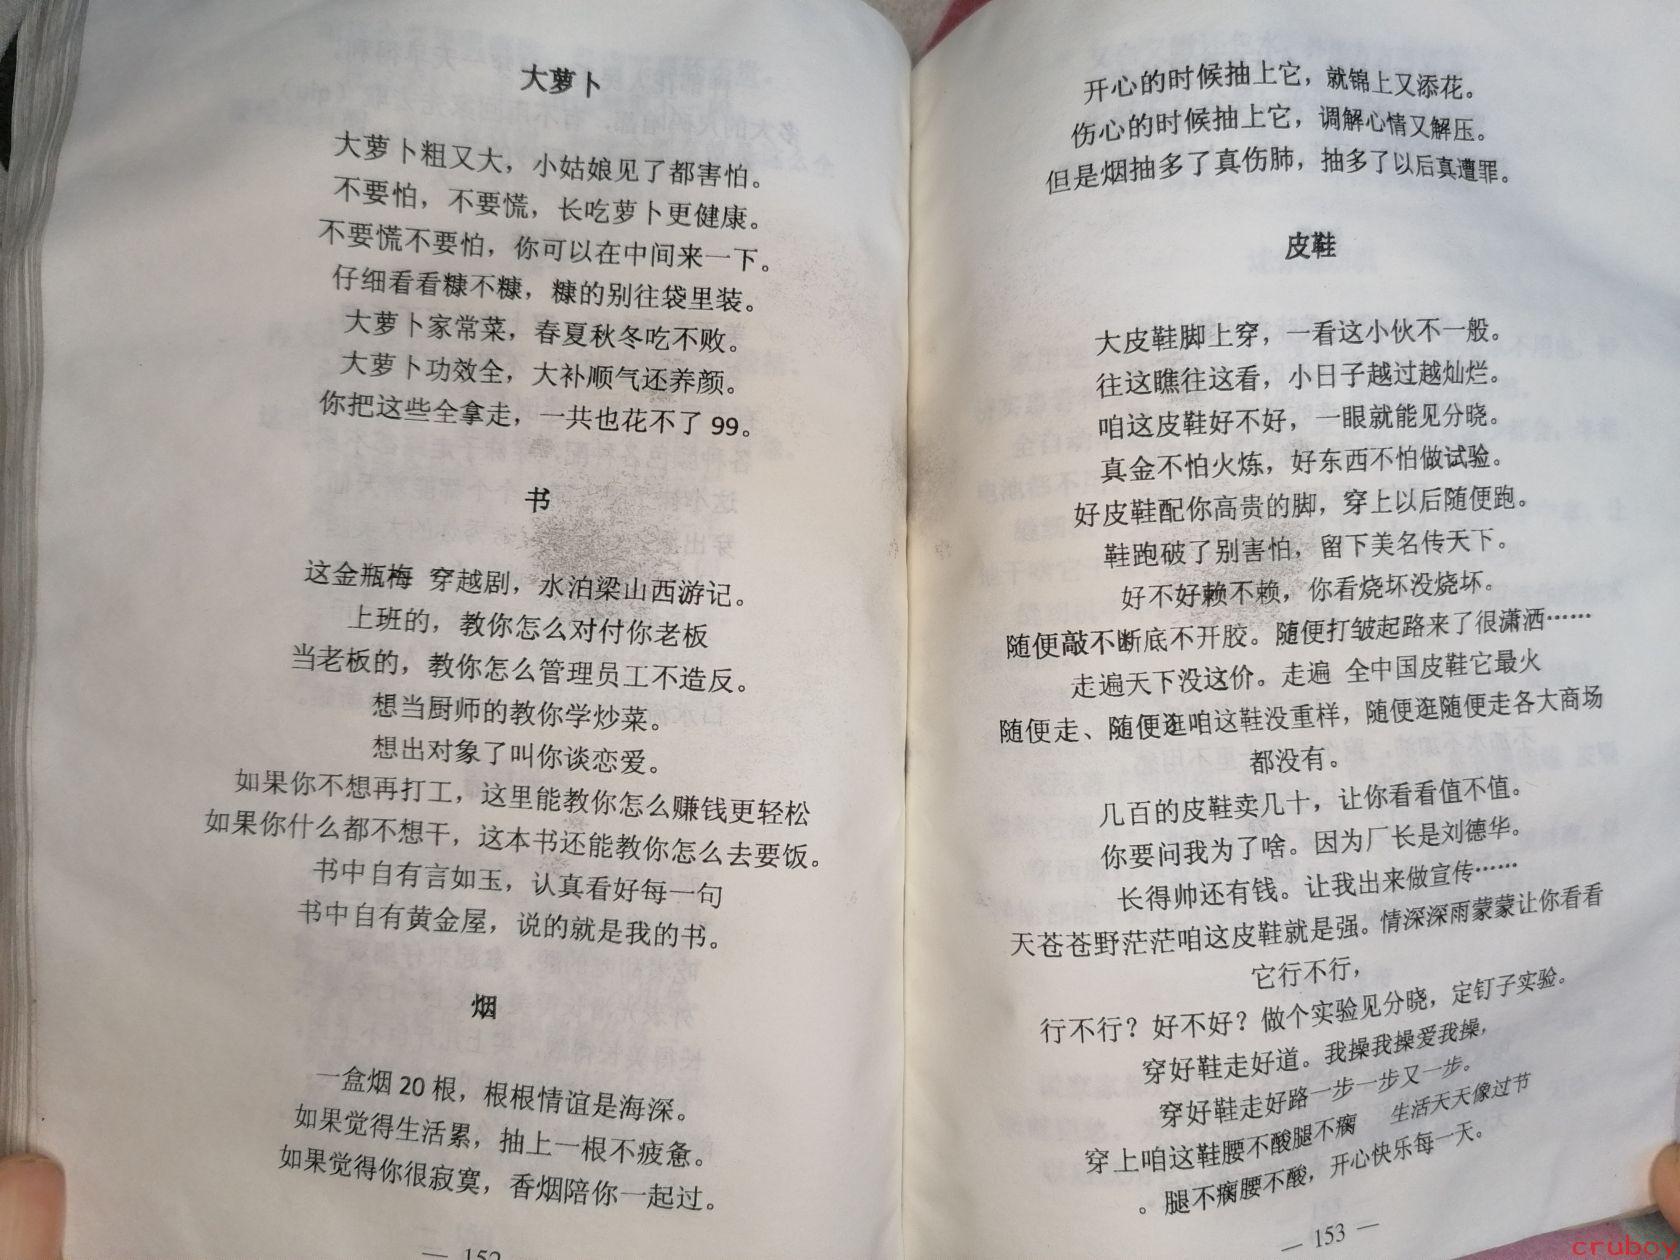 大萝卜
大萝卜粗又大，小姑娘见了都害怕。
不要怕，不要慌，长吃萝卜更健康。
不要慌不要怕，你可以在中间来一下。
仔细看看糠不糠，糠的别往袋里装。
大萝卜家常菜，春夏秋冬吃不败。
大萝卜功效全，大补顺气还养颜。
你把这些全拿走，一共也花不了 99。
书
这金瓶梅 穿越剧，水泊梁山西游记。
上班的，教你怎么对付你老板
当老板的，教你怎么管理员工不造反。
想当厨师的教你学炒菜。
想出对象了叫你谈恋爱。
如果你不想再打工，这里能教你怎么赚钱更轻松
如果你什么都不想干，这本书还能教你怎么去要饭。
书中自有言如玉，认真看好每一句
书中自有黄金屋，说的就是我的书。
烟
一盒烟 20 根，根根情谊是海深。
如果觉得生活累，抽上一根不疲惫。
如果觉得你很寂寞，香烟陪你一起过。
— 152
开心的时候抽上它，就锦上又添花。
伤心的时候抽上它，调解心情又解压。
但是烟抽多了真伤肺，抽多了以后真遭罪。
皮鞋
大皮鞋脚上穿，一看这小伙不一般。
往这瞧往这看，小日子越过越灿烂。
咱这皮鞋好不好，一眼就能见分晓。
真金不怕火炼，好东西不怕做试验。
好皮鞋配你高贵的脚，穿上以后随便跑。
鞋跑破了别害怕，留下美名传天下。
好不好赖不赖，你看烧坏没烧坏。
随便敲不断底不开胶。随便打皱起路来了很潇洒……
走遍天下没这价。走遍 全中国皮鞋它最火
随便走、随便逛咱这鞋没重样，随便逛随便走各大商场
都没有。
几百的皮鞋卖几十，让你看看值不值。
你要问我为了啥。因为厂长是刘德华。
长得帅还有钱。让我出来做宣传……
天苍苍野茫茫咱这皮鞋就是强。情深深雨蒙蒙让你看看
它行不行，
行不行？好不好？做个实验见分晓，定钉子实验。
穿好鞋走好道。我操我操爱我操，
穿好鞋走好路一步一步又一步。
穿上咱这鞋腰不酸腿不瘸 生活天天像过节
。腿不瘸腰不酸，开心快乐每一天。
— 153 —
cruboy